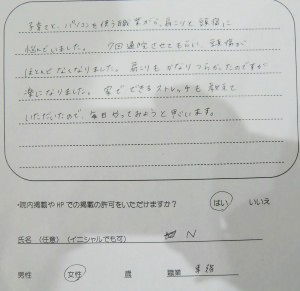 子育てと、パソコンを使う職業から、肩こりと頭痛に
悩んでいました。 7回通院させてもらい、頭痛が
ほとんどなくなりました。肩こりもかなりつらかったのですが
楽になりました。家でできるストレッチも教えて
いただいたので、毎日やってみようと思います。
・院内掲載やHPでの掲載の許可をいただけますか? はい いいえ
氏名(任意)(イニシャルでも可) N
男性 女性 歳 職業 事務